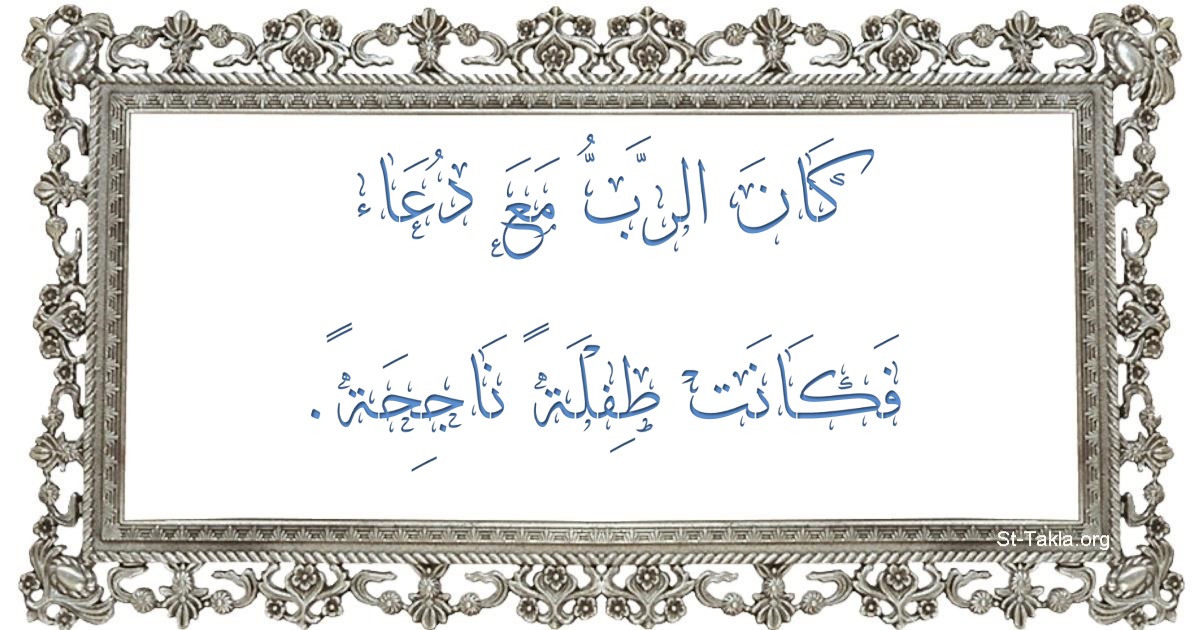 كَانَ الرَّبُّ مَعَ دُعَاء
فَكَانَتْ طِفْلَةً نَاجِحَةً.
St-Takla.org